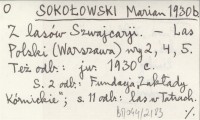 O SOKOŁOWSKI Marian 1930b.
Z lasów Szwajcarji. - Las
Polski (Warszawa) 2, 4, 5.
Też odb: jw. 1930c.
S. 2 odb: Fundacja „Zakłady
Kórnickie"; s. 11 odb: las w Tatrach.